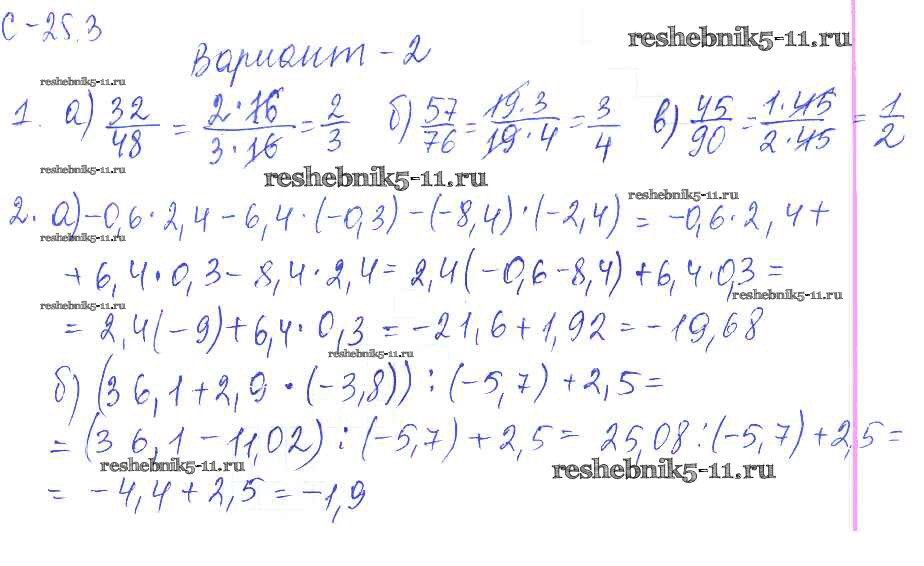 С-25.3
reshebnik5-11.ru
Вариант-2
reshebnik5-11.ru
1. а) 32/48 = 2·16/3·16 = 2/3 б) 57/76 = 19·3/19·4 = 3/4 в) 45/90 = 1·45/2·45 = 1/2
reshebnik5-11.ru
reshebnik5-11.ru
reshebnik5-11.ru
2. а) -0,6·2,4-6,4·(-0,3)-(-8,4)·(-2,4) = -0,6·2,4+
reshebnik5-11.ru
+6,4·0,3-8,4·2,4= 2,4(-0,6-8,4)+6,4·0,3=
reshebnik5-11.ru
reshebnik5-11.ru
= 2,4(-9)+6,4·0,3 = -21,6+1,92 = -19,68
reshebnik5-11.ru
б) (36,1+2,9·(-3,8)):(-5,7)+2,5=
=(36,1-11,02):(-5,7)+2,5= 25,08:(-5,7)+2,5=
reshebnik5-11.ru
reshebnik5-11.ru
= -4,4+2,5=-1,9